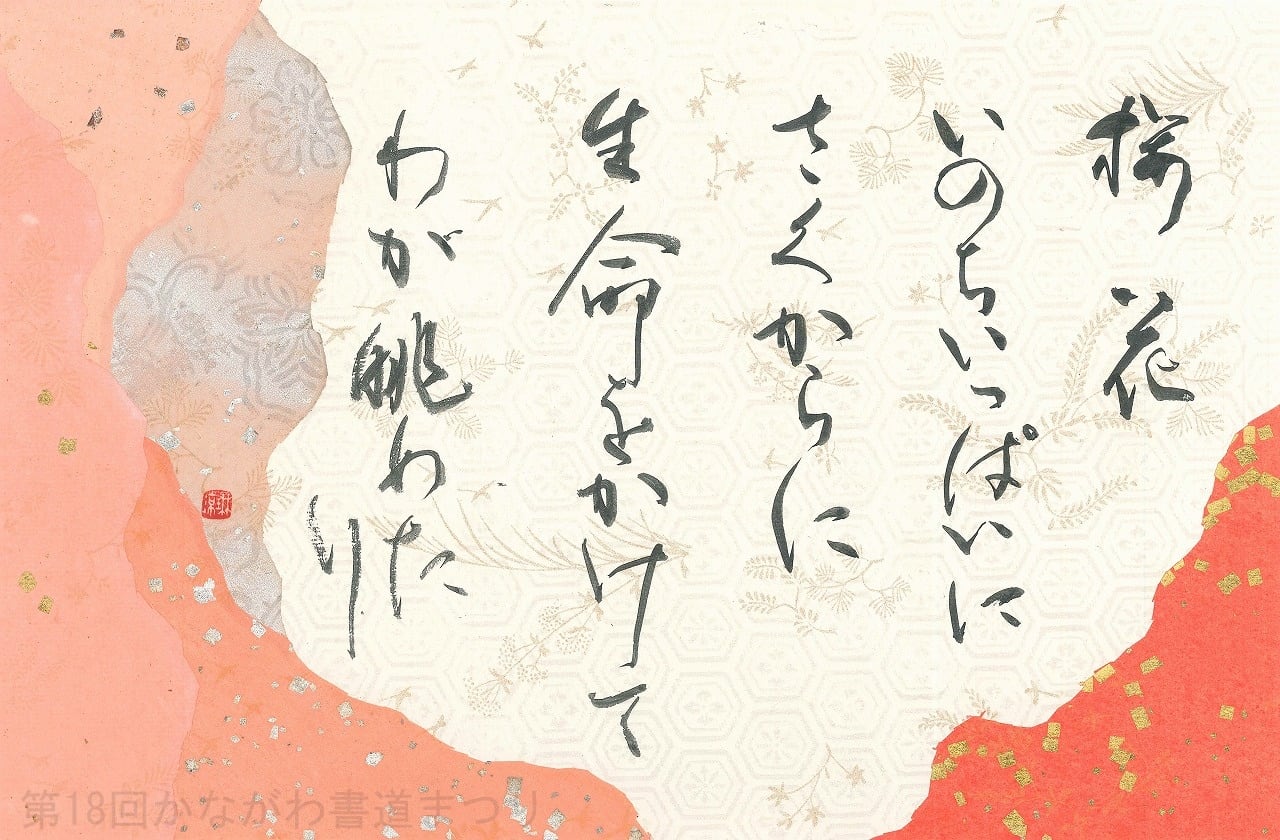 桜花
いのちいっぱいに
さくからに
生命をかけて
わが眺わた
り
第18回かながわ書道まつり